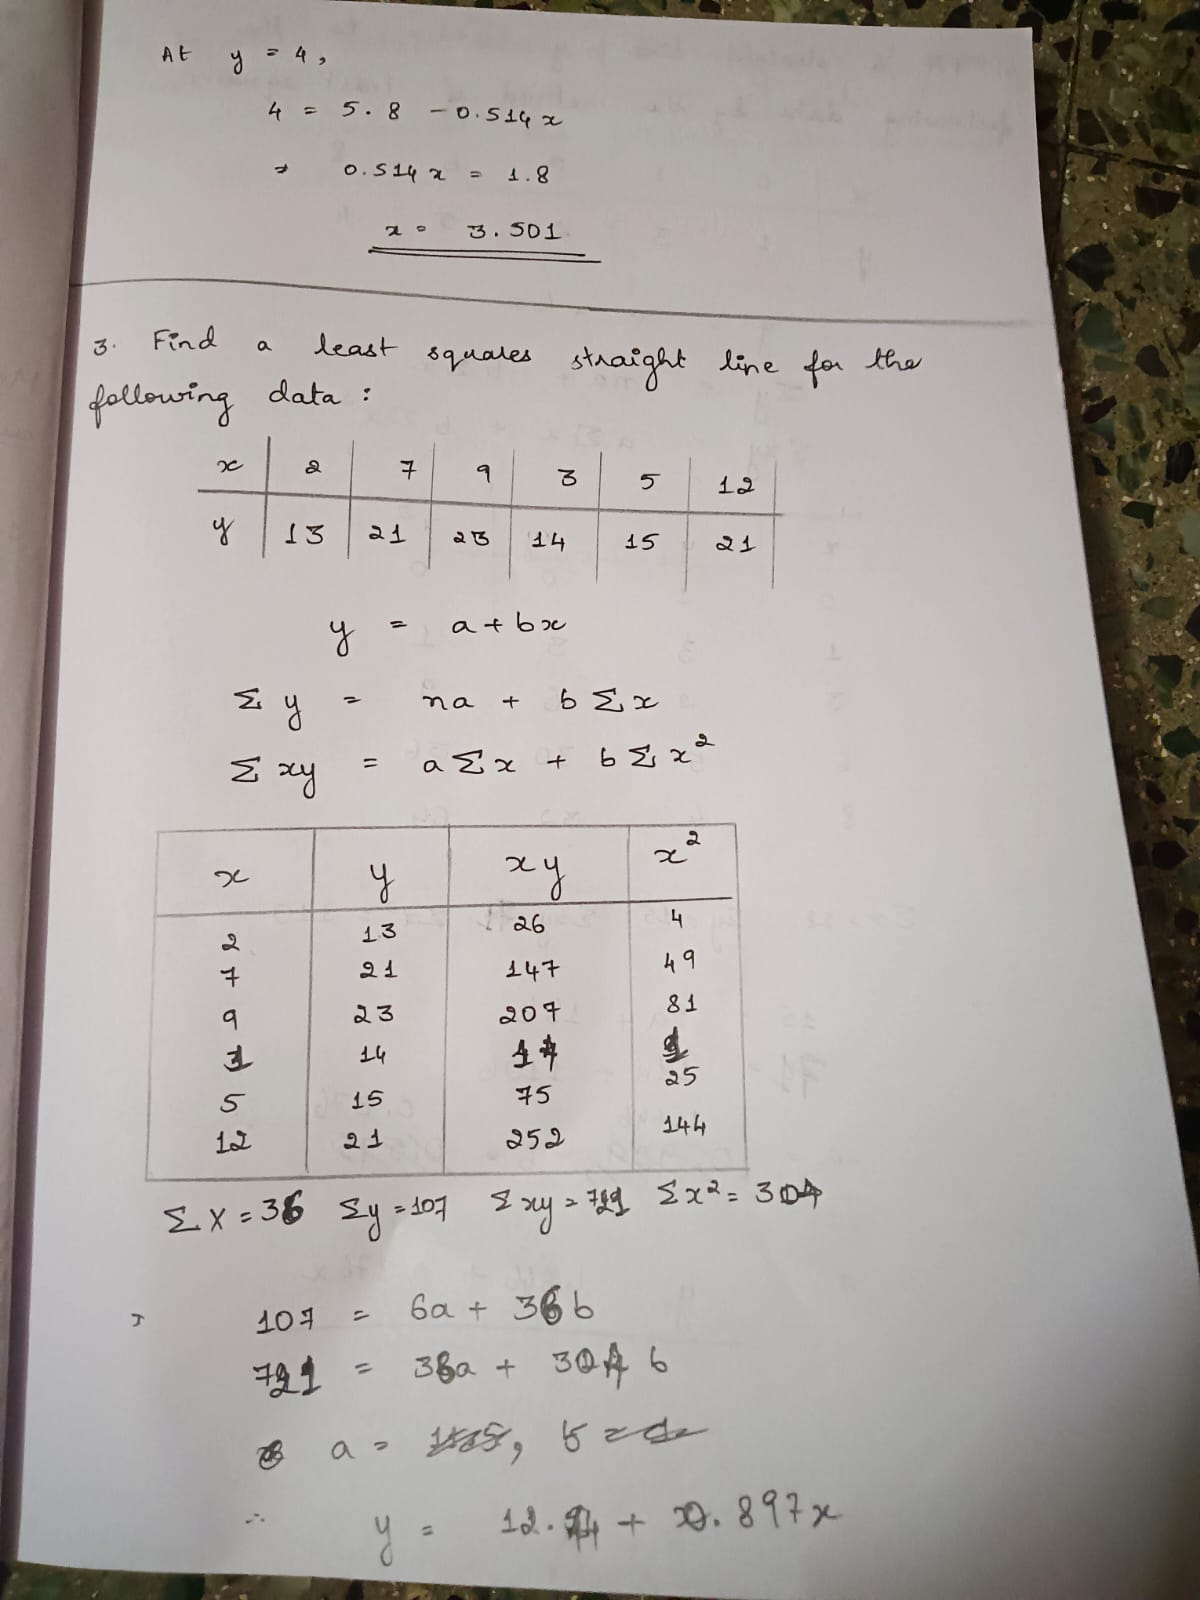 At y = 4,
4 = 5.8 - 0.514x
⇒ 0.514x = 1.8
x = 3.501
3. Find a least squares straight line for the
following data :
x 2 7 9 3 5 12
y 13 21 23 14 15 21
y = a + bx
Σy = na + bΣx
Σxy = aΣx + bΣx²
x y xy x²
2 13 26 4
7 21 147 49
9 23 207 81
14
5 15 75 25
12 21 252 144
Σx = 36 Σy = 107 Σxy = 721 Σx² = 304
107 = 6a + 36b
721 = 36a + 304b
a = , b =
∴ y = 12. + 0.897x